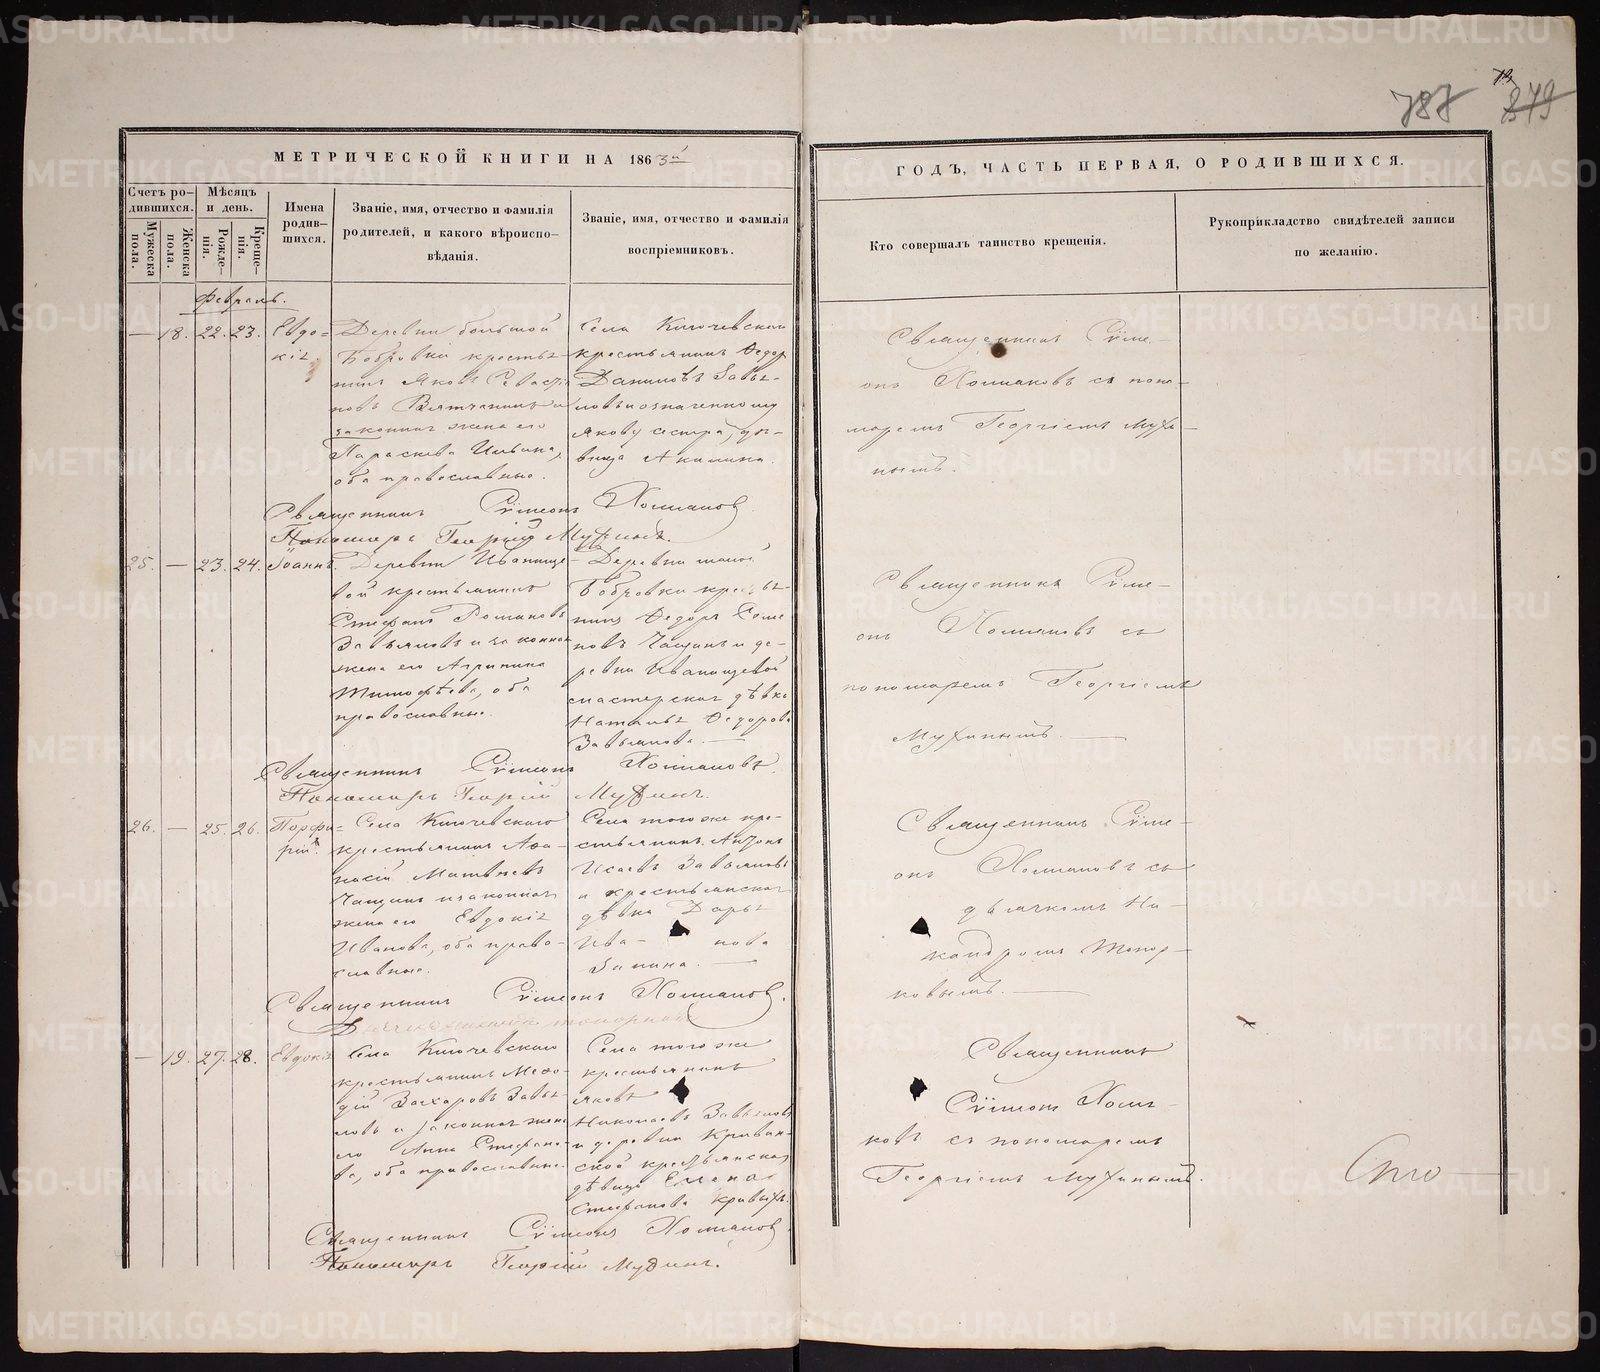 787
879
МЕТРИЧЕСКОЙ КНИГИ НА 1863й
ГОДЪ, ЧАСТЬ ПЕРВАЯ, О РОДИВШИХСЯ.
Счетъ ро-
дившихся.
Мужеска
пола.
Женска
пола.
Мѣсяцъ
и день.
Рожде-
нія.
Креще-
нія.
Имена
родив-
шихся.
Званіе, имя, отчество и фамилія
родителей, и какого вѣроиспо-
вѣданія.
Званіе, имя, отчество и фамилія
воспріемниковъ.
Кто совершалъ таинство крещенія.
Рукоприкладство свидѣтелей записи
по желанію.
Февраль.
— 18. 22. 23.
Евдо=
кія
Деревни большой
Бобровки крестья-
нинъ Яковъ
Вятчанинъ и
законная жена его
Параскева Ильина,
оба православные.
Села Ключевскаго
крестьянинъ Ѳедор
Даниловъ Завья-
ловъ и означенному
Якову сестра, дѣ-
вица Акилина.
Священникъ Сѵме-
онъ Холмаковъ съ поно-
маремъ Георгіемъ Мухи-
нымъ.
Священникъ Сѵмеонъ Холмаковъ
Пономарь Георгій Мухинъ.
25. — 23. 24.
Іоаннъ.
Деревни Иванище-
вой крестьянинъ
Стефанъ Романовъ
Завьяловъ и законная
жена его Агрипина
Тимофѣева, оба
православные.
Деревни малой
Бобровки крестья-
нинъ Ѳедоръ
новъ Чащинъ и де-
ревни Иванищевой
мастерская дѣвка
Наталья Ѳедорова
Завьялова.
Священникъ Сѵме-
онъ Холмаковъ съ
пономаремъ Георгіемъ
Мухинымъ.
Священникъ Сѵмеонъ Холмаковъ.
Пономарь Георгій Мухинъ.
26. — 25. 26.
Порфи=
рій.
Села Ключевскаго
крестьянинъ Аѳа-
насій Матвѣевъ
Чащинъ и законная
жена его Евдокія
Иванова, оба право-
славные.
Села того же кре-
стьянинъ Антонъ
Исаевъ Завьяловъ
и крестьянская
дѣвка Дарья
Ива- нова
Запина.
Священникъ Сѵме-
онъ Холмаковъ съ
дьячкомъ Ни-
кандромъ Топор-
ковымъ.
Священникъ Сѵмеонъ Холмаковъ.
— 19. 27. 28.
Евдокія
Села Ключевскаго
крестьянинъ Меѳо-
дій Захаровъ Завья-
ловъ и законная жена
его Анна Стефано-
ва, оба православные.
Села того же
крестьянинъ
Яковъ
Николаевъ Завьяловъ
и деревни Кривин-
ской крестьянская
дѣвица Елена
Стефанова Кривыхъ.
Священникъ
Сѵмеонъ Холма-
ковъ съ пономаремъ
Георгіемъ Мухинымъ.
Священникъ Сѵмеонъ Холмаковъ.
Пономарь Георгій Мухинъ.
METRIKI.GASO-URAL.RU